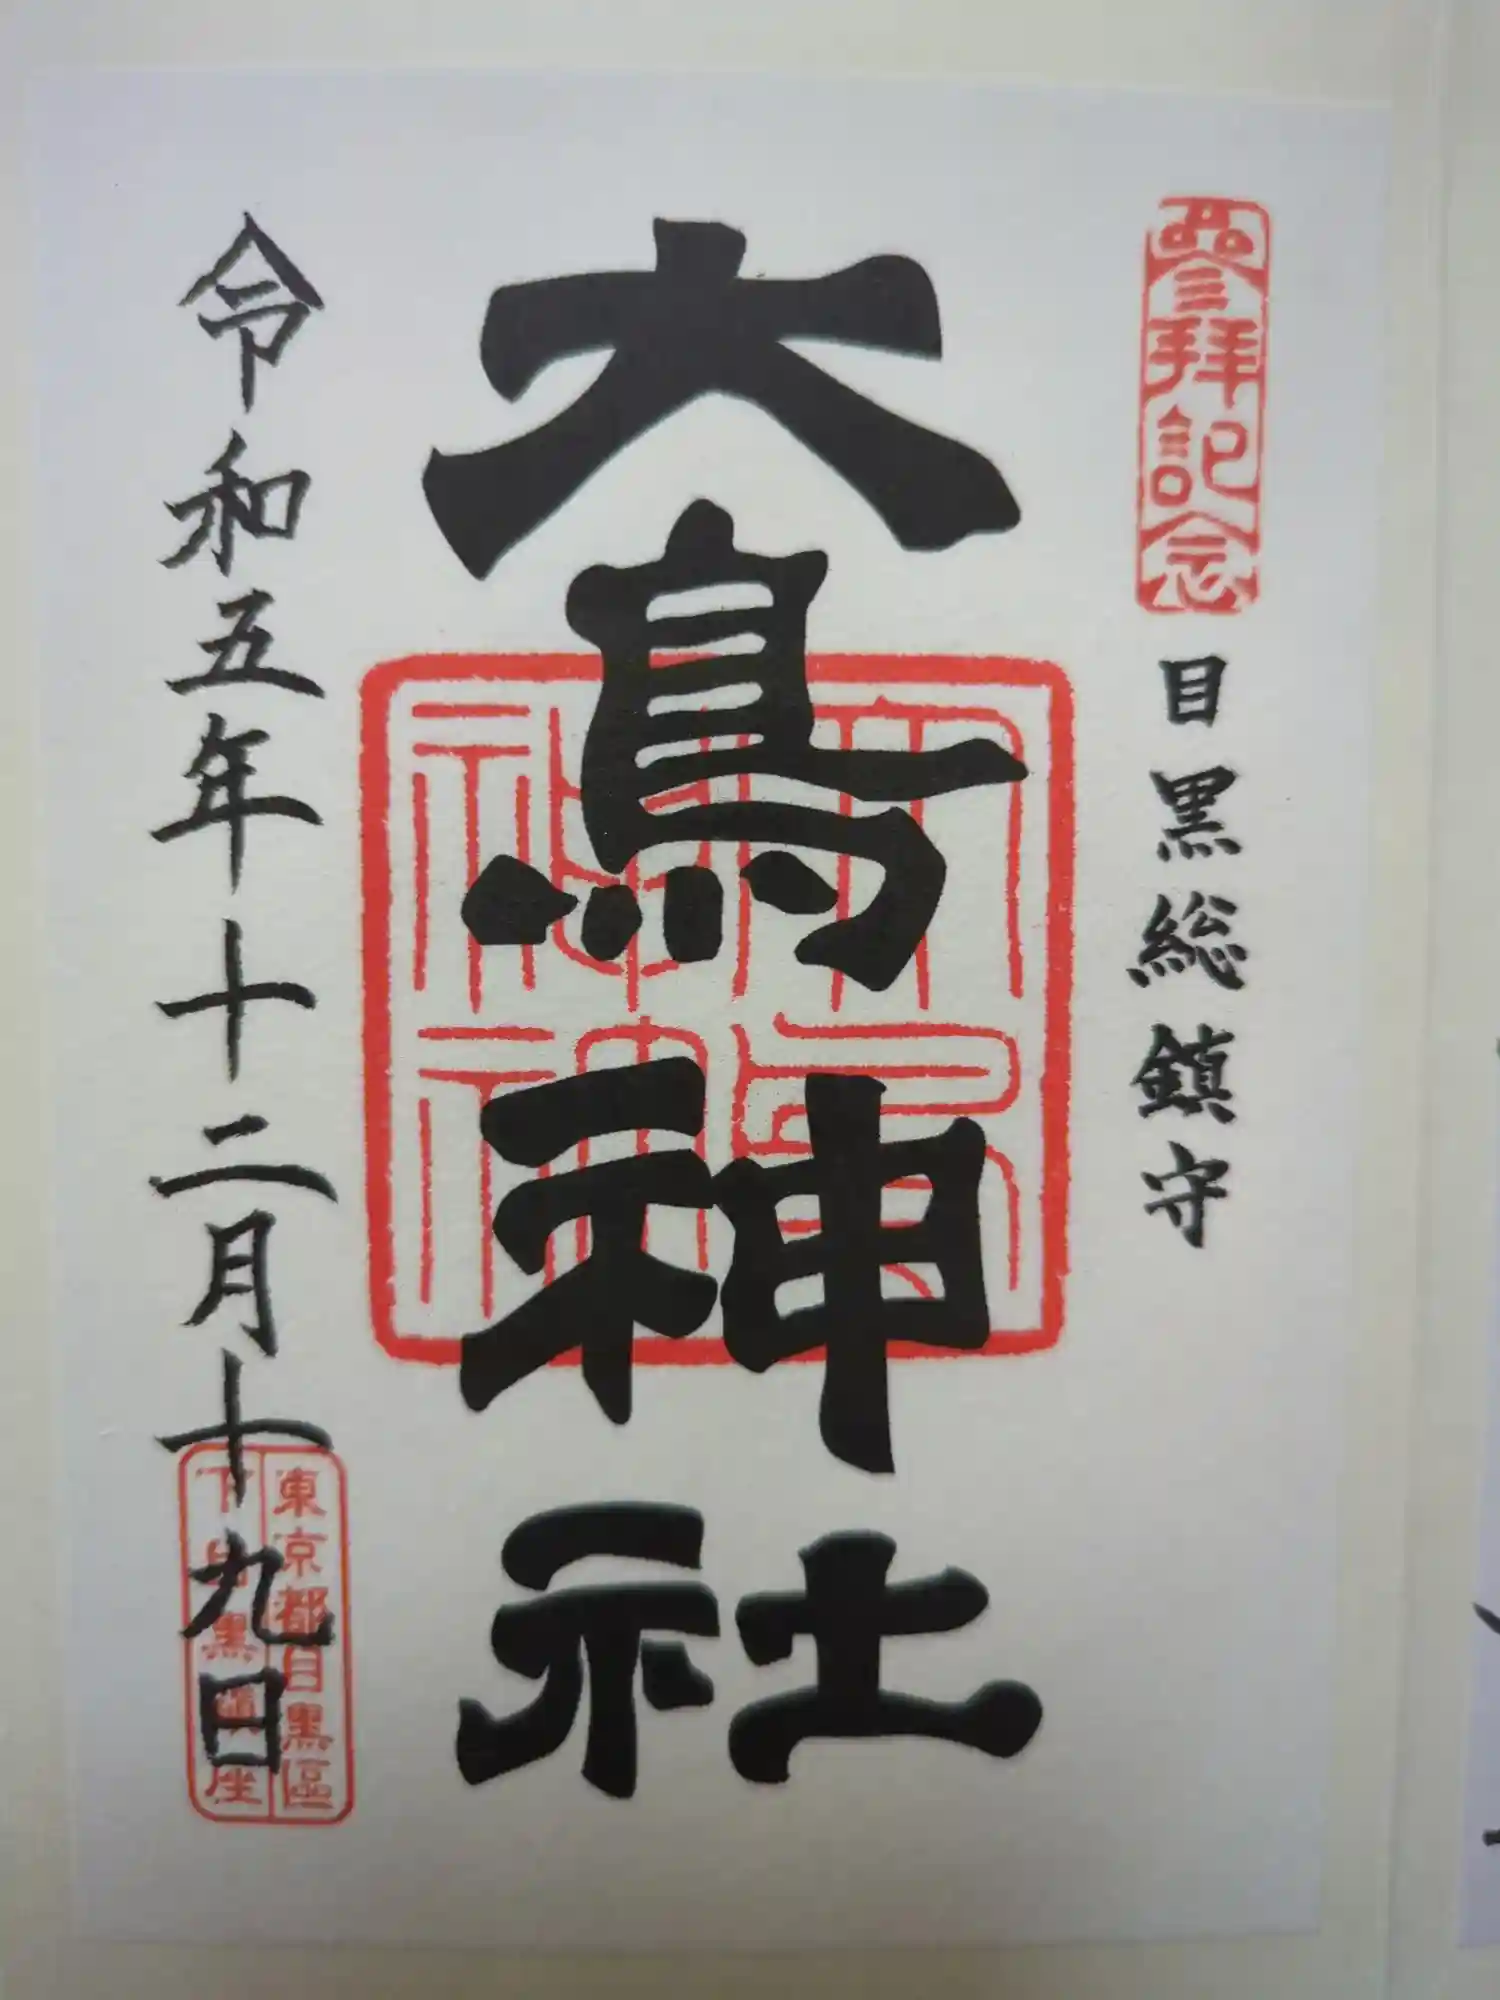 參拜記念
目黒総鎮守
大鳥神社
令和五年十二月十九日
東京都目黒區
下目黒鎮座